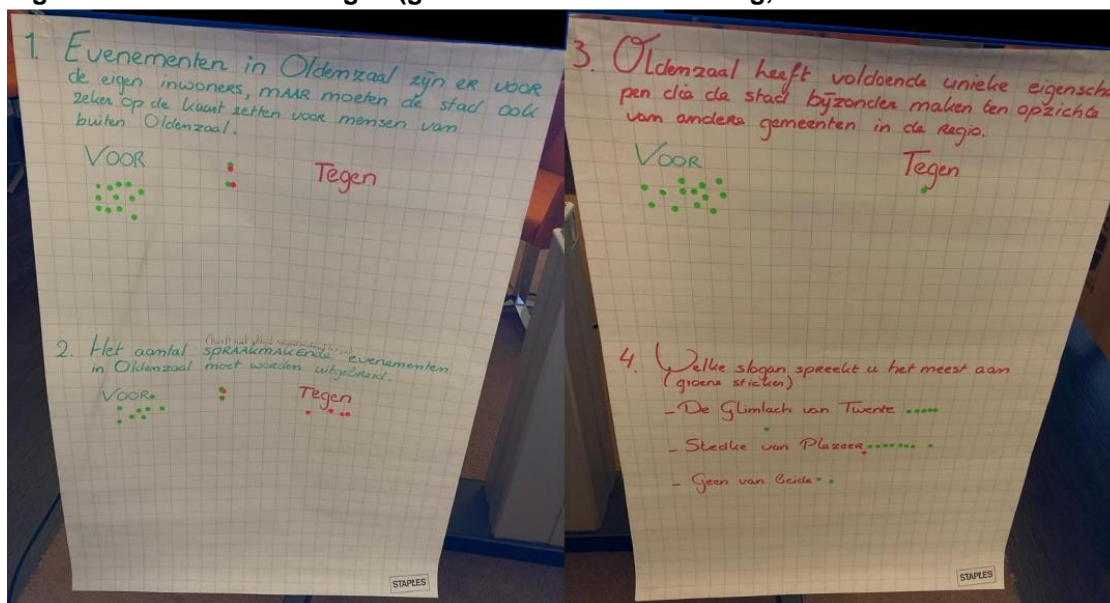 1. Evenementen in Oldenzaal zijn er voor
de eigen inwoners, MAAR moeten de stad ook
zeker op de kaart zetten voor mensen van
buiten Oldenzaal.
VOOR
Tegen
2. Het aantal SPRAAKMAKENDE evenementen
in Oldenzaal moet worden uitgebreid.
VOOR
Tegen
STAPLES
3. Oldenzaal heeft voldoende unieke eigenscha
pen die de stad bijzonder maken ten opzichte
van andere gemeenten in de regio.
VOOR
Tegen
4. Welke slogan spreekt u het meest aan
(groene sticker)
- De Glimlach van Twente
- Stedke van Plezeer
- Geen van beide
STAPLES